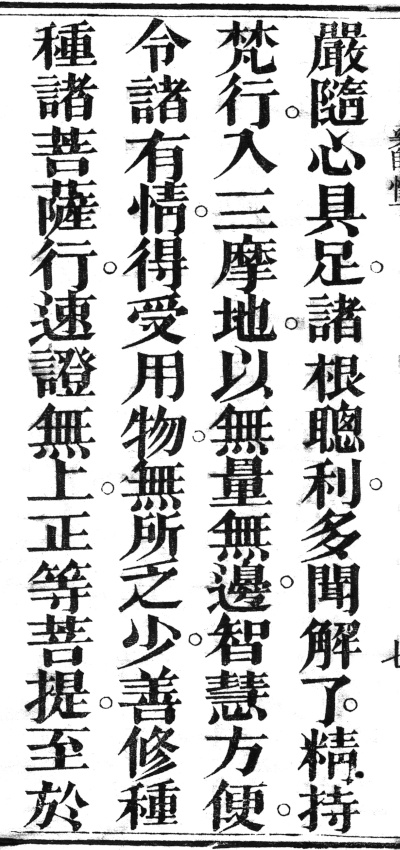 嚴隨心具足。諸根聰利。多聞解了。精持
梵行。入三摩地。以無量無邊。智慧方便。
令諸有情。得受用物。無所之少。善修種
種諸菩薩行。速證無上。正等菩提。至於